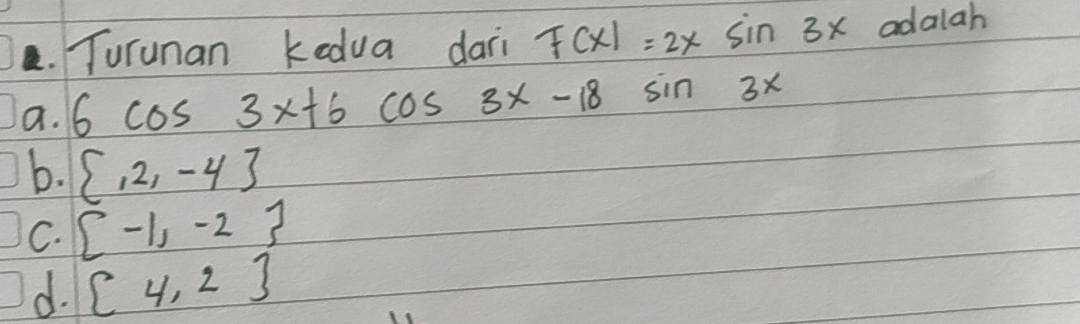 2. Turunan kedua dari F(x) = 2x sin 3x adalah
a. 6 cos 3x+6 cos 3x -18 sin 3x
b. { ,2, -4 }
c. { -1, -2 }
d. { 4, 2 }